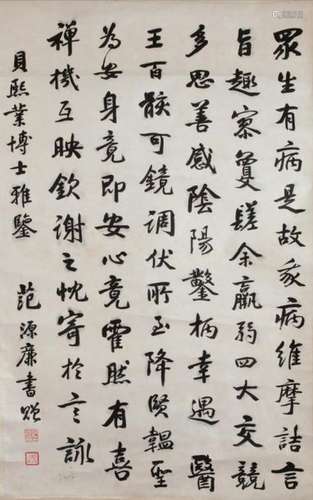 眾生有病是故我病維摩詰言
旨趣寥敻嗟余羸弱四大交競
多思善感陰陽鑿枘幸遇醫
王百骸可鏡調伏所至降賢韞聖
為安身竟即安心竟霍然有喜
禪機互映欽謝之忱寄於言詠
貝熙業博士雅鑒
范源廉書贈